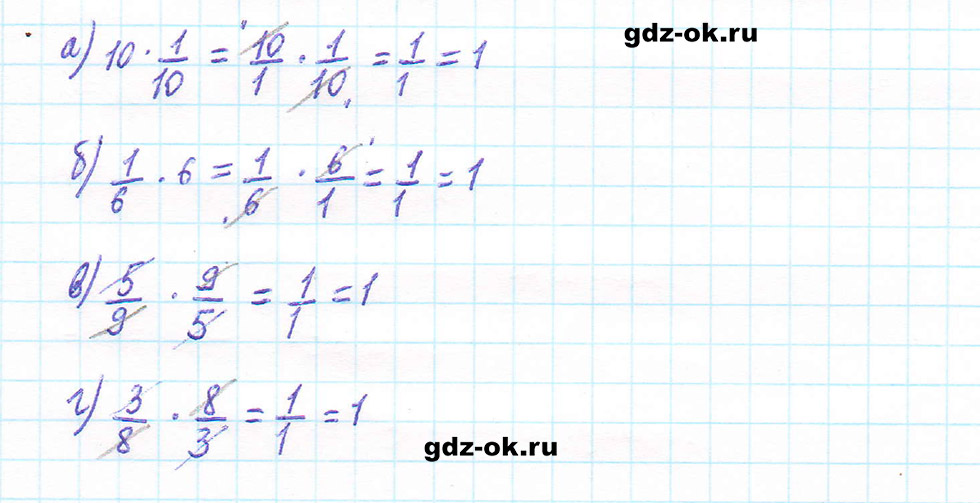 gdz-ok.ru
а) 10 · 1/10 = 10/1 · 1/10 = 1/1 = 1
б) 1/6 · 6 = 1/6 · 6/1 = 1/1 = 1
в) 5/9 · 9/5 = 1/1 = 1
г) 3/8 · 8/3 = 1/1 = 1
gdz-ok.ru